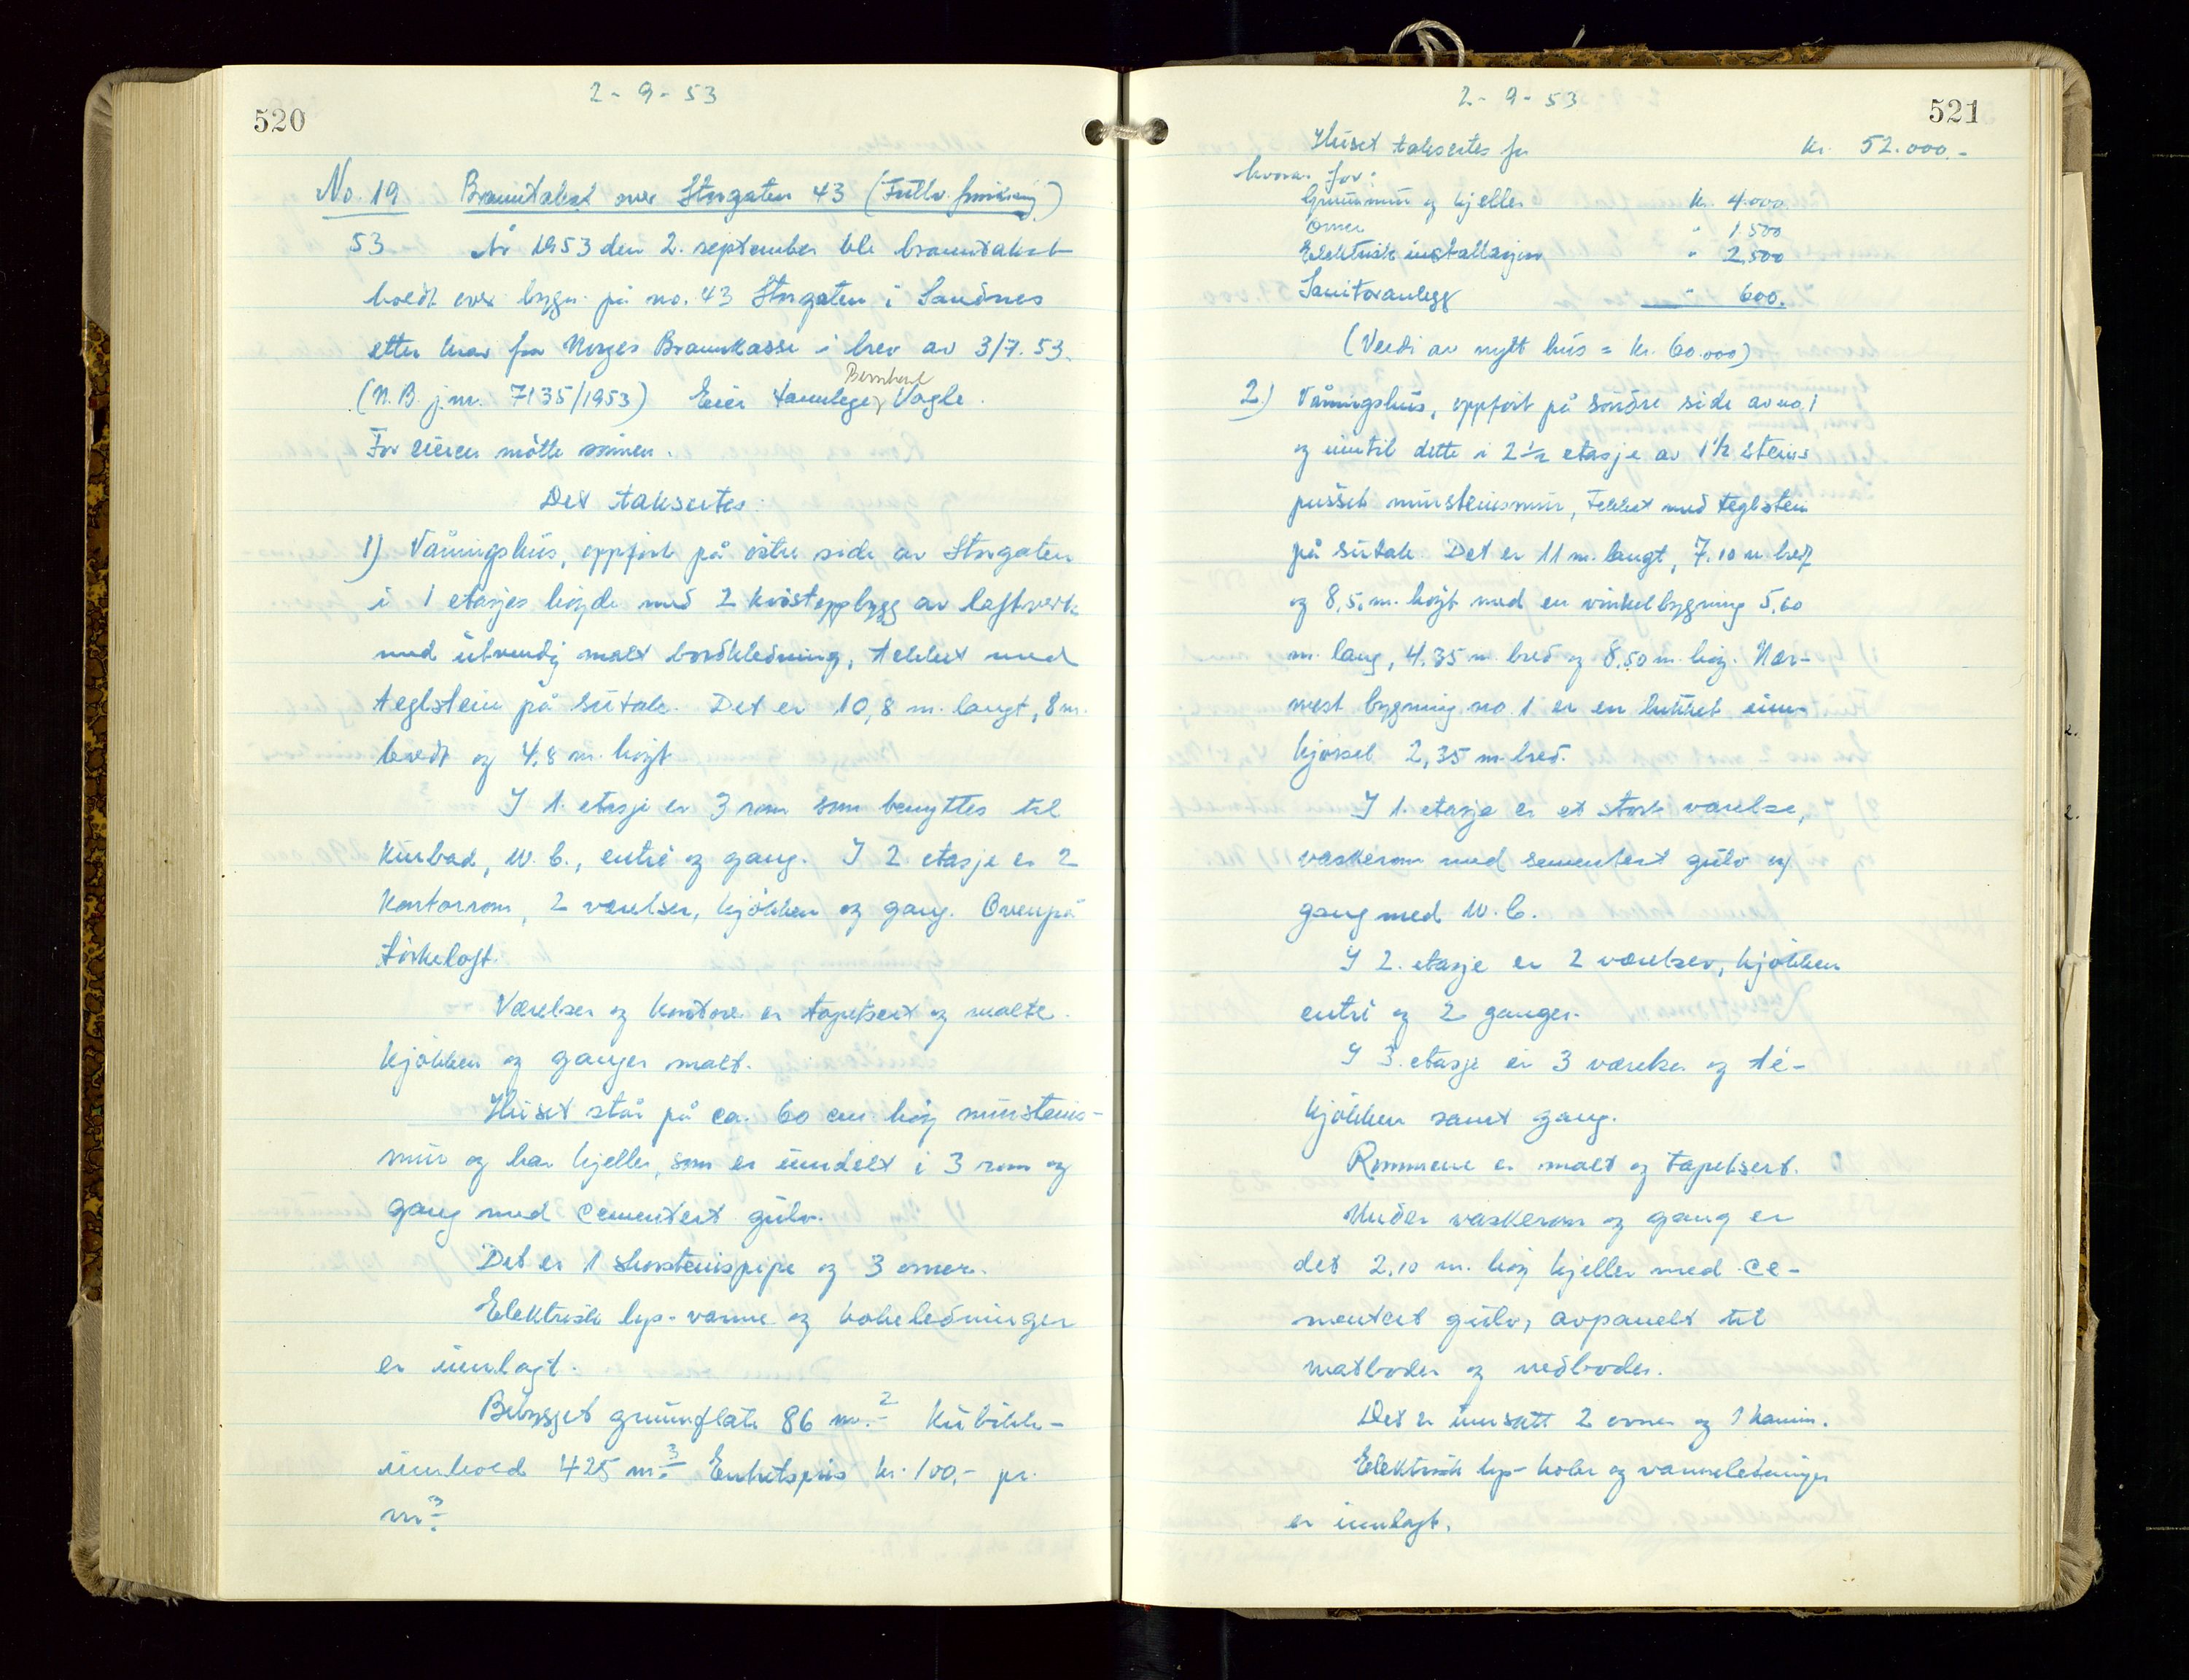 520
2-9-53
No. 19 Branntakst over Storgaten 43 (Fullv. forsikring)
53 År 1953 den 2. september ble branntakst
holdt over bygn. på no. 43 Storgaten i Sandnes
etter krav fra Norges Brannkasse i brev av 3/7.53.
Bernhard
(N.B. j.nr. 7135/1953) Eier tannlege Vagle.
For eieren møtte sønnen.
Det taksertes:
1) Våningshus, oppført på østre side av Storgaten
i 1 etasjes høyde med 2 kvistoppbygg av laftverk
med utvendig malt bordkledning, tekket med
teglstein på sutak. Det er 10,8 m. langt, 8 m.
bredt og 4,8 m. høyt.
I 1. etasje er 3 rom som benyttes til
kurbad, W.C., entré og gang. I 2. etasje er 2
kontorrom, 2 værelser, kjøkken og gang. Ovenpå
tørkeloft.
Værelser og kontorer er tapetsert og malte.
Kjøkken og ganger malt.
Huset står på ca. 60 cm høy murstens-
mur og har kjeller, som er inndelt i 3 rom og
gang med cementert gulv.
Det er 1 skorstenspipe og 3 ovner.
Elektrisk lys- varme og kokeledninger
er innlagt.
Bebygget grunnflate 86 m.² Kubikk-
innhold 425 m.³ Enhetspris kr. 100,- pr.
m³.
521
2-9-53
Huset taksertes for kr. 52.000.-
hvorav for:
Grunnmur og kjeller kr. 4.000
Ovner " 1.500
Elektrisk installasjon " 2.500
Sanitæranlegg " 600.
(Verdi av nytt hus = kr. 60.000)
2) Våningshus, oppført på søndre side av no. 1
og inntil dette i 2 1/2 etasje av 1 1/2 steins
pusset murstensmur, tekket med teglstein
på sutak. Det er 11 m. langt, 7,10 m. bredt
og 8,5 m. høyt med en vinkelbygning 5,60
m. lang, 4,35 m. bred og 8,50 m. høy. Nær-
mest bygning no. 1 er en lukket inn-
kjørsel 2,35 m. bred.
I 1. etasje er et stort værelse,
vaskerom med sementert gulv og
gang med W.C.
I 2. etasje er 2 værelser, kjøkken
entré og 2 ganger.
I 3. etasje er 3 værelser og té-
kjøkken samt gang.
Rommene er malt og tapetsert.
Under vaskerom og gang er
det 2,10 m. høy kjeller med ce-
mentert gulv, avpanelt til
matboder og vedboder.
Det er innsatt 2 ovner og 1 kamin.
Elektrisk lys- koke og varmeledninger
er innlagt.